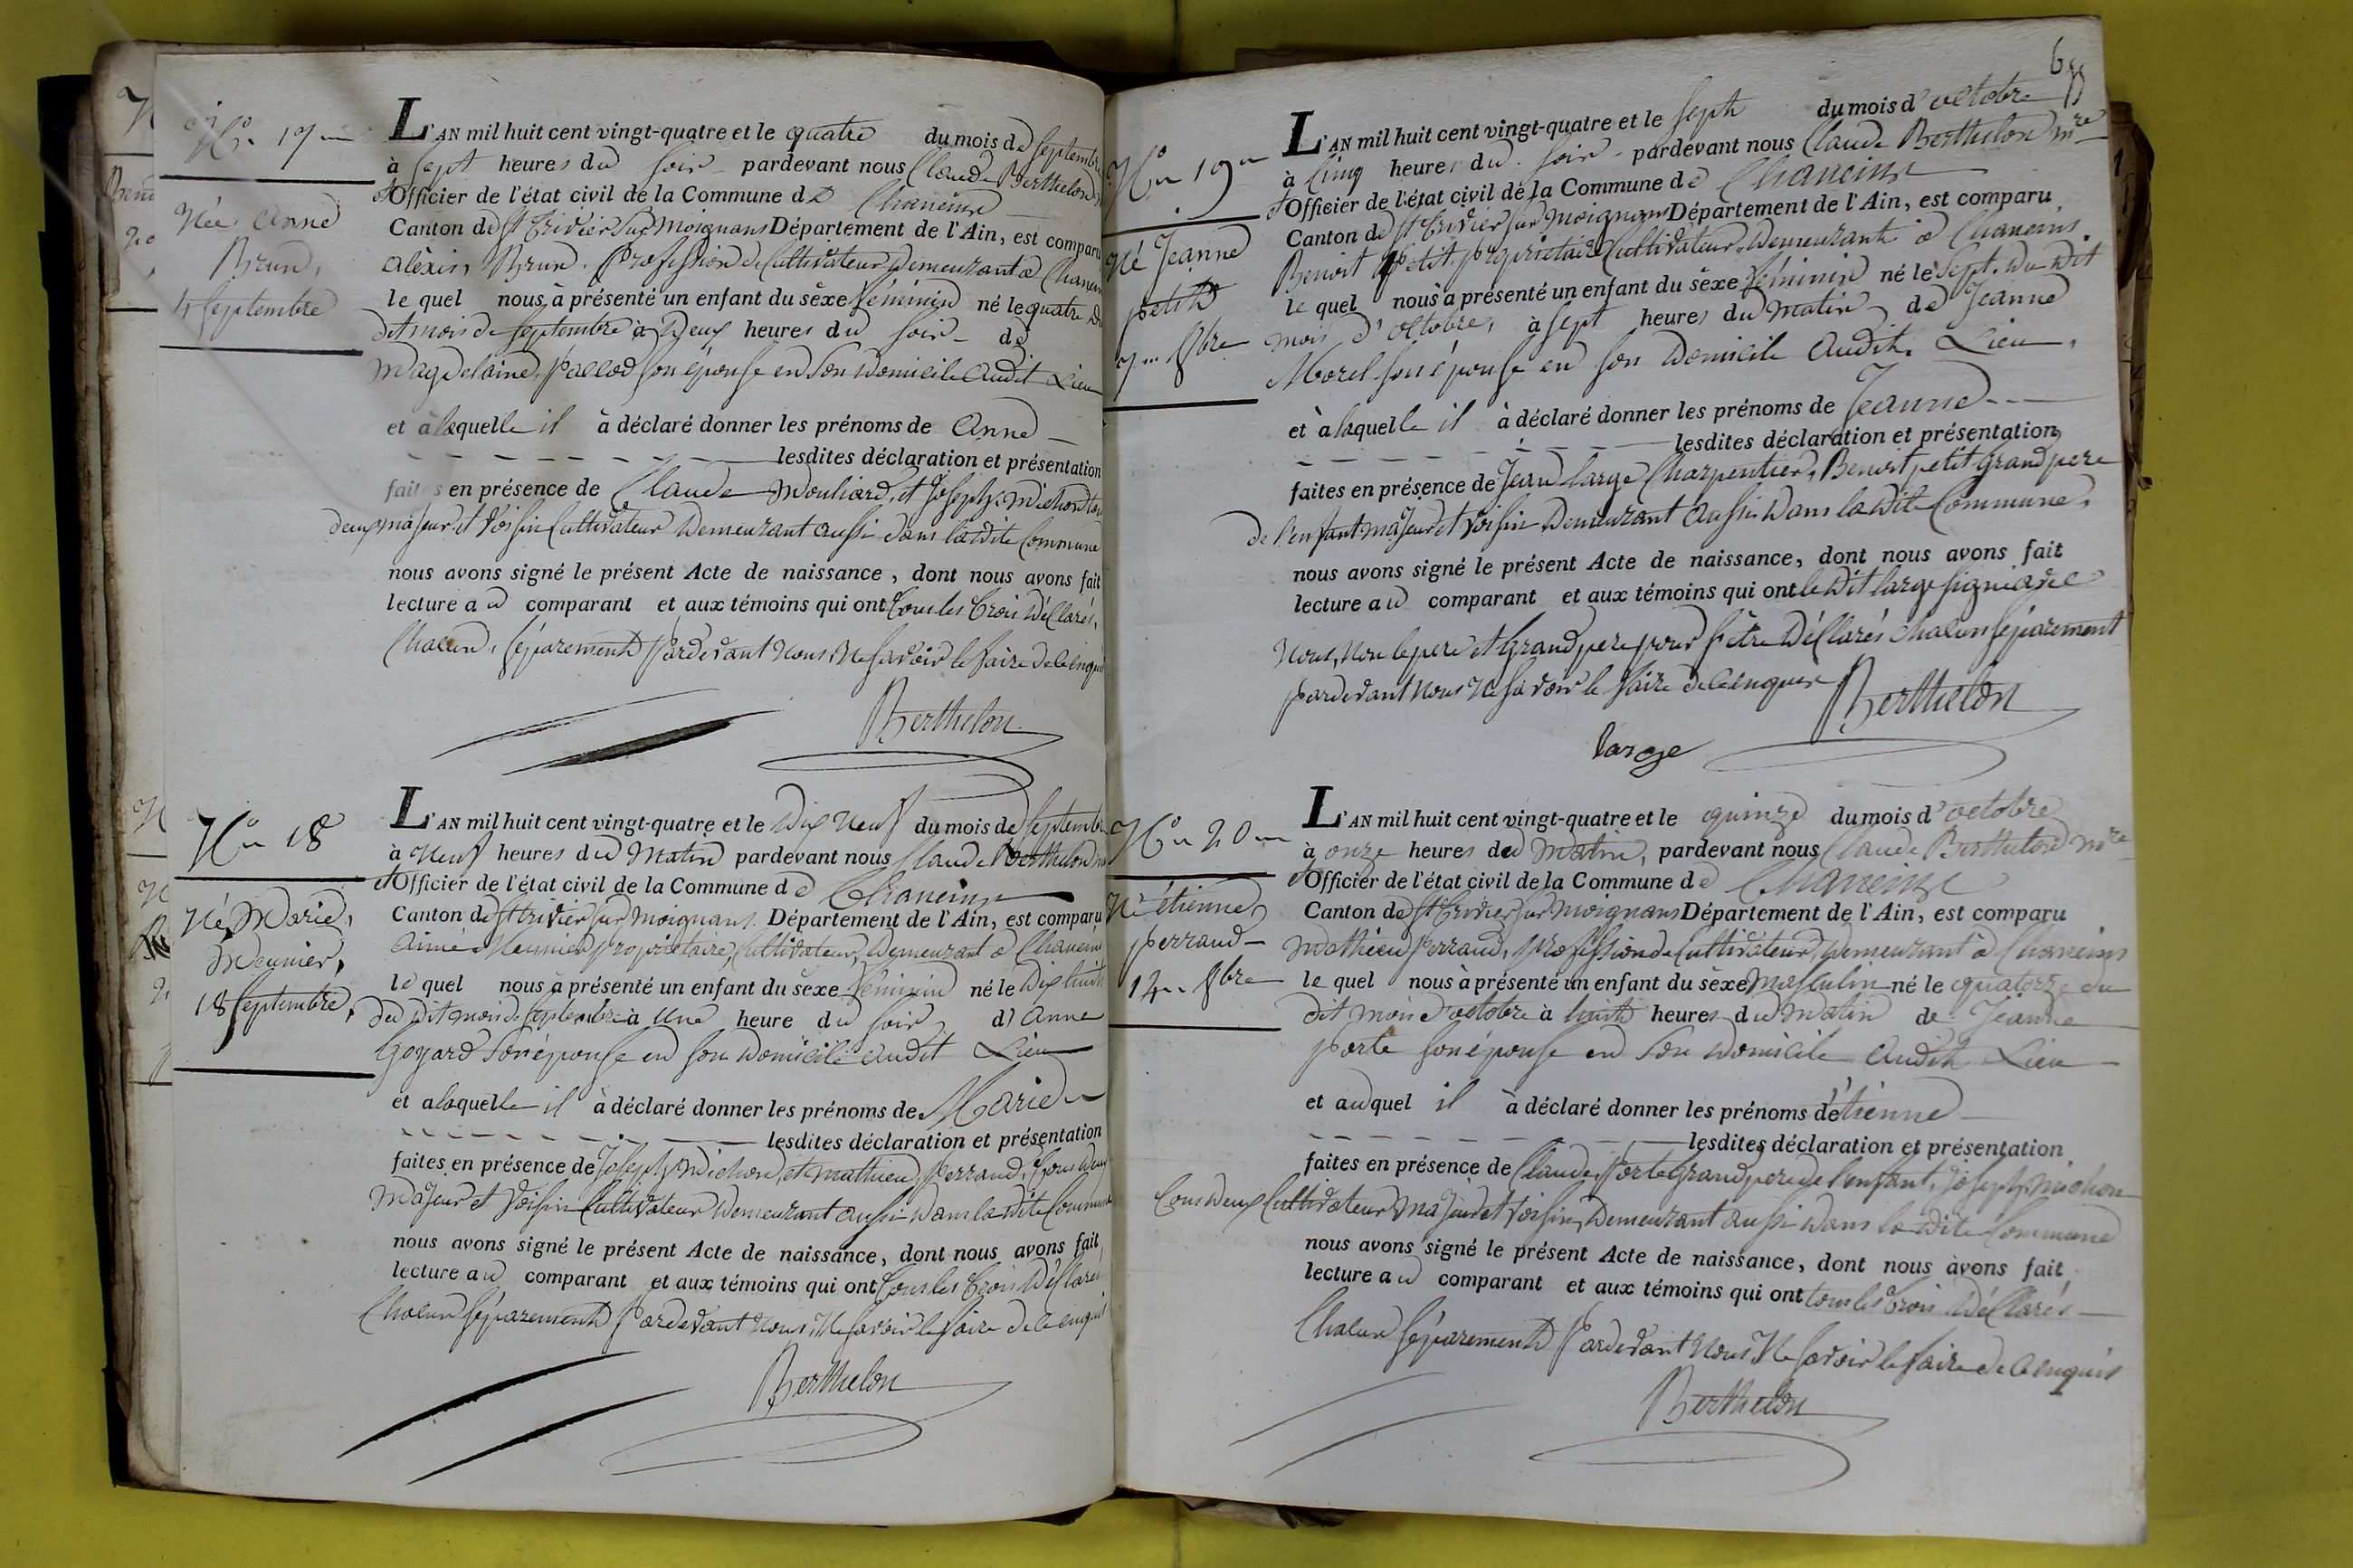 No 17
Née Anne
Brun,
4 Septembre
L'AN mil huit cent vingt-quatre et le quatre du mois de Septembre
à Sept heures du Soir pardevant nous Claude Berthelon
et Officier de l'état civil de la Commune de Chaneins
Canton de St Trivier Sur Moignans Département de l'Ain, est comparu
alèxis, Brun. Profession de Cultivateur Demeurant a
le quel nous à présenté un enfant du sèxe féminin né le quatre du
dit mois de Septembre à Deux heures du Soir - de
Magdelaine, son épouse en Son Domicile Audit Lieu
et à laquelle il à déclaré donner les prénoms de Anne
lesdites déclaration et présentation
faites en présence de Claude Mouliard, et Joseph Michon tous
deux majeur et Voisin Cultivateur Demeurant aussi dans la dite Commune
nous avons signé le présent Acte de naissance, dont nous avons fait
lecture au comparant et aux témoins qui ont tous les trois Déclarés,
Chacun, Séparement Pardevant Nous, Ne Savoir le faire de ce enquis
Berthelon
No 18
Né Marie,
Meunier,
18 Septembre,
L'AN mil huit cent vingt-quatre et le Dix Neuf du mois de Septembre
à Neuf heures du Matin pardevant nous Claude Berthelon
et Officier de l'état civil de la Commune de Chaneins
Canton de St trivier sur moignans Département de l'Ain, est comparu
Aimé Meunier propriétaire, Cultivateur, Demeurant a Chaneins
le quel nous à présenté un enfant du sèxe féminin né le Dix huit
du dit mois de Septembre à Une heure du Soir, d'Anne
Goyard Son épouse en son Domicile audit Lieu
et a laquelle il à déclaré donner les prénoms de Marie
lesdites déclaration et présentation
faites en présence de Joseph Michon, et Mathieu, Perraud, tous deux
Majeur et Voisin Cultivateur Demeurant aussi Dans la Dite Commune
nous avons signé le présent Acte de naissance, dont nous avons fait
lecture au comparant et aux témoins qui ont tous les trois Déclarés
Chacun Séparement Pardevant Nous, Ne Savoir le faire de ce enquis
Berthelon
No 19
Né Jeanne
petit
7 8bre
L'AN mil huit cent vingt-quatre et le Sept du mois d'octobre
à Cinq heures du Soir pardevant nous Claude Berthelon mre
et Officier de l'état civil de la Commune de Chaneins
Canton de St Trivier sur Moignans Département de l'Ain, est comparu
Benoit Petit, propriétaire Cultivateur, Demeurant a Chaneins.
le quel nous à présenté un enfant du sèxe féminin né le Sept. du dit
mois d'octobre, à Sept heures du Matin de Jeanne
Morel son épouse en son Domicile Audit Lieu.
et à laquelle il à déclaré donner les prénoms de Jeanne
lesdites déclaration et présentation
faites en présence de Jean large Charpentier, Benoit petit Grand pere
de l'enfant majeur et Voisin Demeurant Aussi dans la Dite Commune,
nous avons signé le présent Acte de naissance, dont nous avons fait
lecture au comparant et aux témoins qui ont le Dit large Signé avec
Nous, Non le pere et Grand pere pour s'être Déclarés chacun Séparement
pardevant Nous Ne Savoir le faire de ce enquis
Berthelon
large
No 20
Né étienne
perraud
14 8bre
L'AN mil huit cent vingt-quatre et le quinze du mois d'octobre
à onze heures du Matin, pardevant nous Claude Berthelon mre
et Officier de l'état civil de la Commune de Chaneins
Canton de St Trivier sur Moignans Département de l'Ain, est comparu
Mathieu Perraud, Profession de Cultivateur, Demeurant à Chaneins
le quel nous à présenté un enfant du sèxe Masculin né le quatorze du
dit mois d'octobre à huit heures du Matin de Jeanne
Porte son épouse en Son Domicile Audit Lieu
et auquel il à déclaré donner les prénoms d'étienne
lesdites déclaration et présentation
faites en présence de Claude Porte Grand pere de l'enfant, Joseph Michon
tous deux Cultivateur Majeur et Voisin, Demeurant aussi dans la Dite Commune
nous avons signé le présent Acte de naissance, dont nous avons fait
lecture au comparant et aux témoins qui ont tous les trois Déclarés
Chacun Séparement Pardevant Nous Ne Savoir le faire de ce enquis
Berthelon